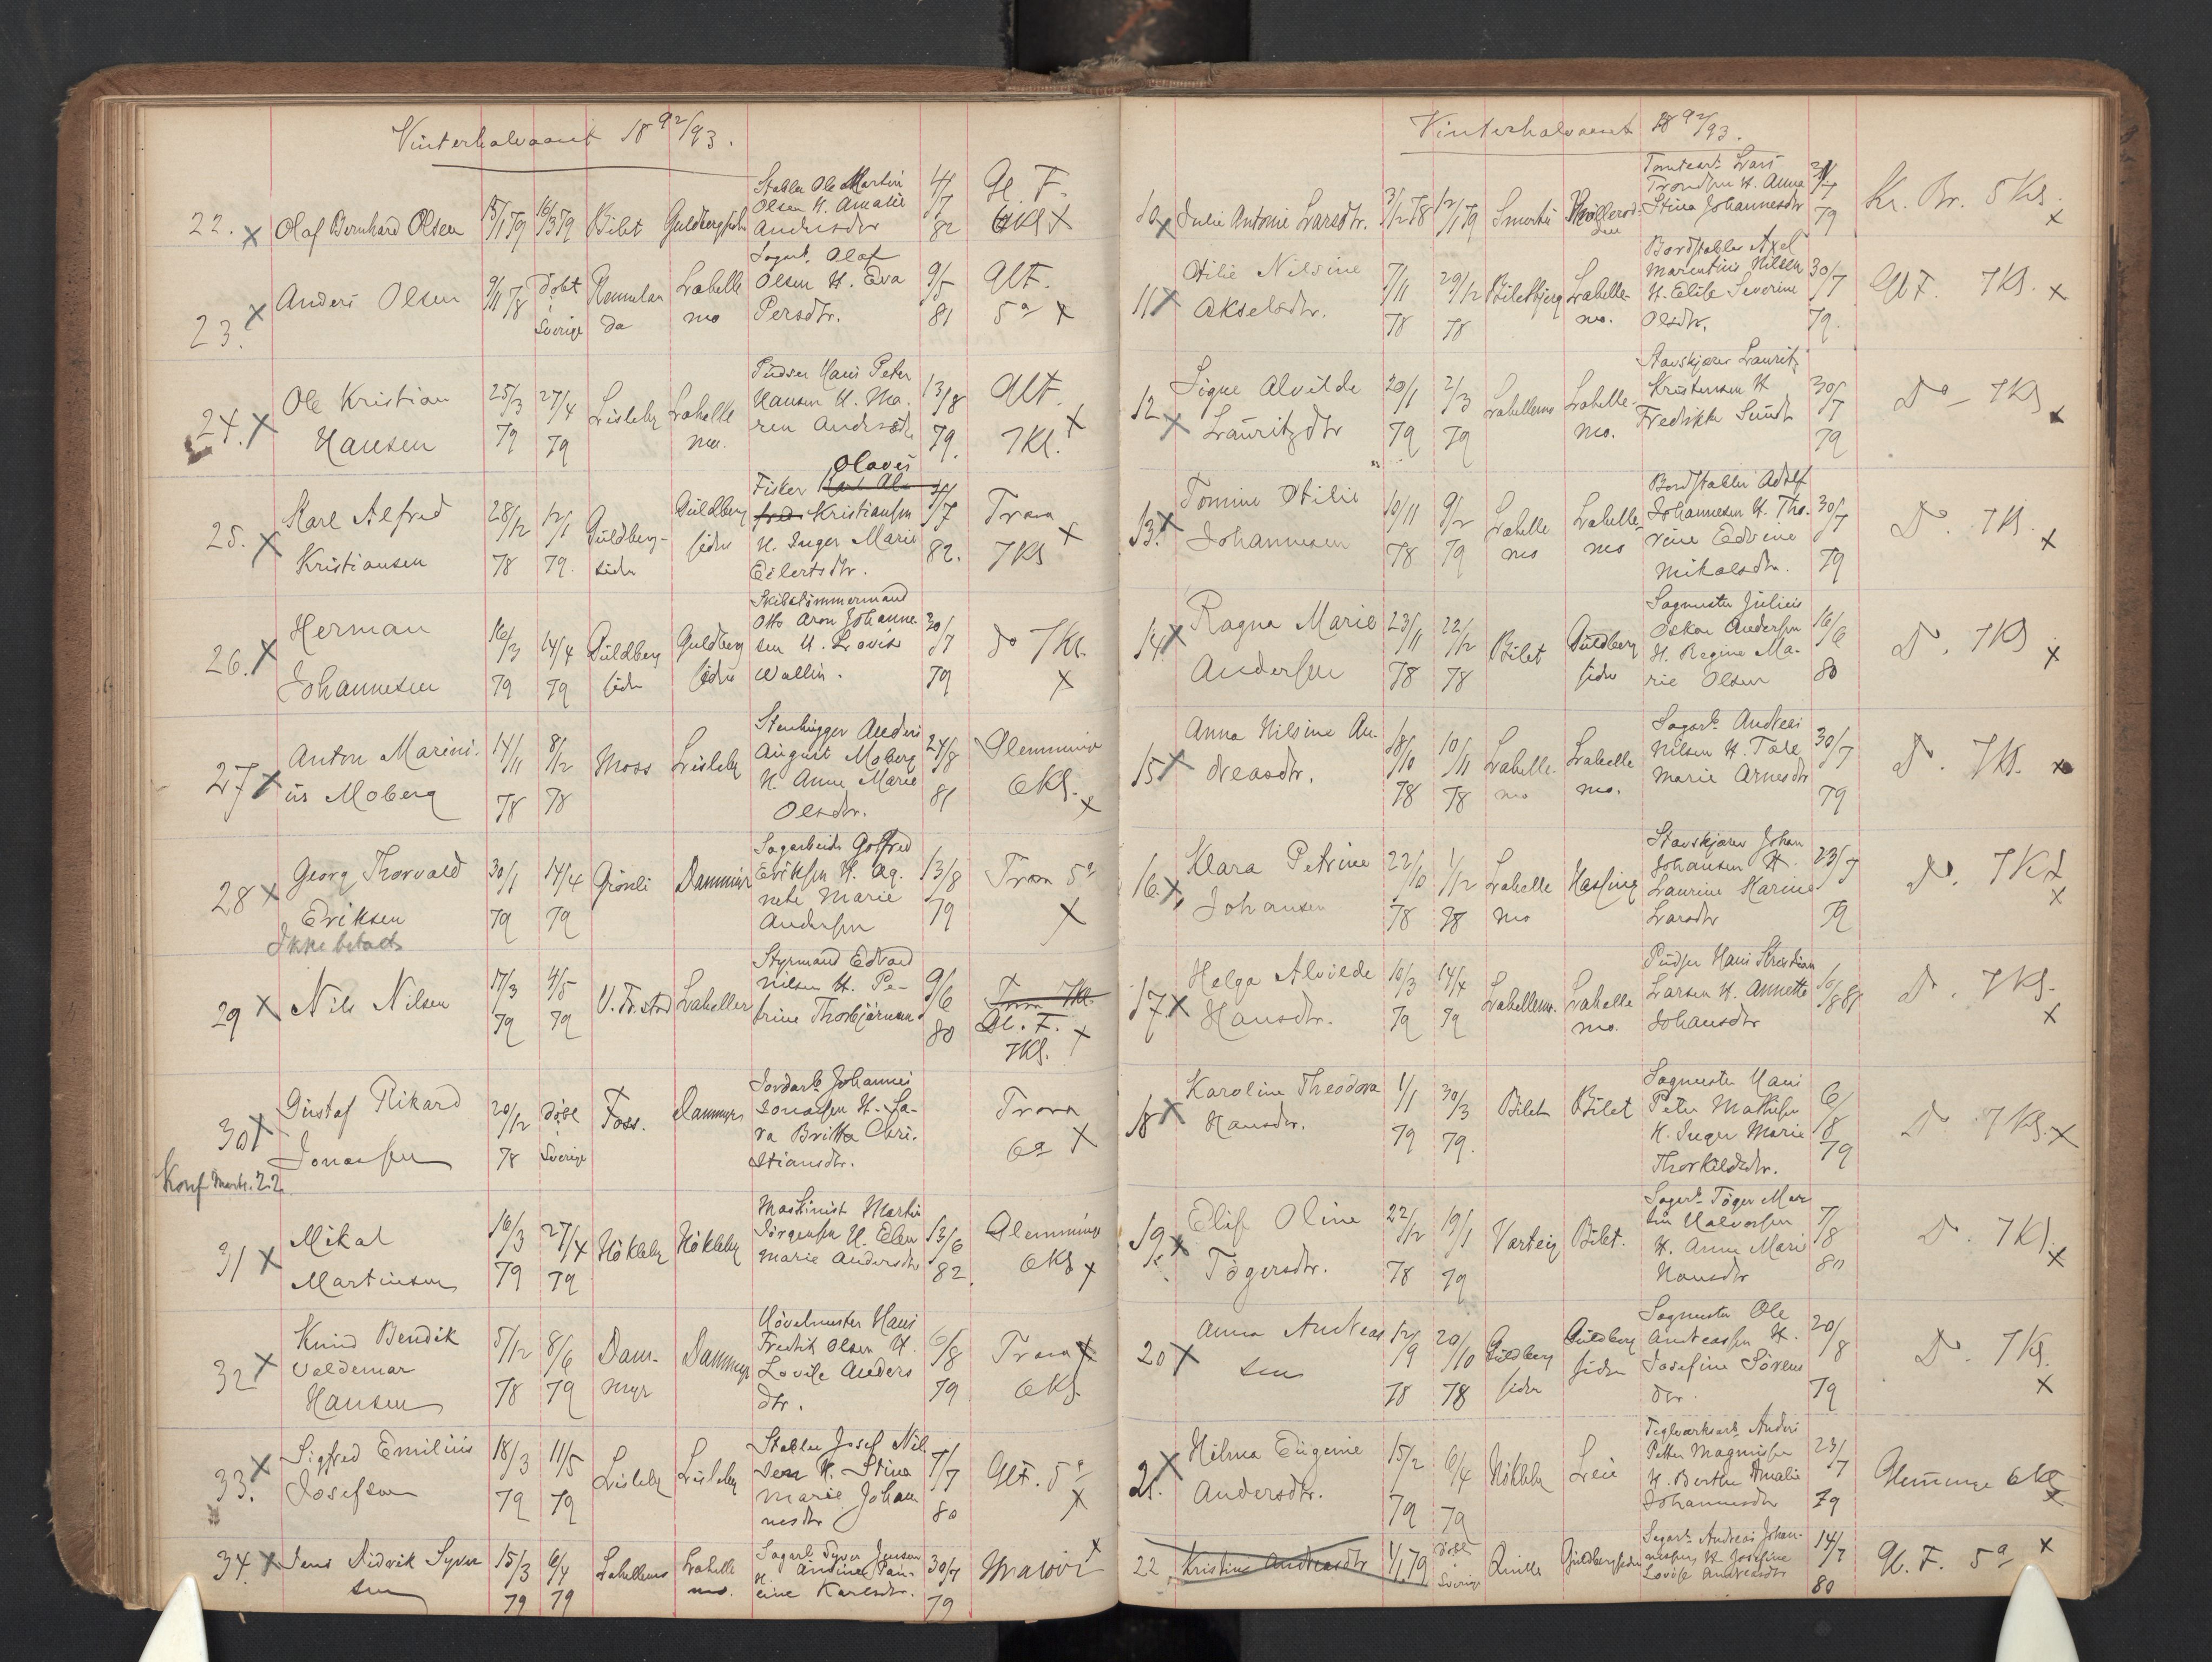 Vinterhalvaaret 18 92/93.
22. x Olaf Bernhard Olsen 15/1 79 16/3 79 Bilet Guldbergsiden Stabler Ole Martin Olsen H. Amalie Andersdtr 4/7 82 Gl. F. 6Kl x
23. x Anders Olsen 9/11 78 döbt i Sverige Lahelle mo Sagarb. Olaf Olsen H. Eva Persdtr. 9/5 81 Gl F. 5a x
24. x Ole Kristian Hansen 25/3 79 27/4 79 Lisleby Lahelle mo. Pudser Hans Peter Hansen H. Maren Andersdtr 13/8 79. Gl F. 7Kl. x
25. x Karl Alfred Kristiansen 28/12 78 12/1 79. Guldberg-siden Guldberg siden Fisker Olaves Kristiansen H. Inger Marie Eilertsdtr. 82. Trara 7Kl x
26. x Herman Johannesen 16/3 79 14/4 79 Guldberg siden Guldberg siden Skibstömmermand Otto Aron Johannesen H. Lovise Wallin. 30/7 79 do 7Kl. x
27 x Anton Marini-us Moberg 14/11 78 8/12 78 Moss Lisleby Stenhugger Anders August Moberg H. Anne Marie Olsdtr. 24/8 81 Glemminge 6Kl. x
28 x Georg Thorvald Eriksen 30/1 79 14/4 79 Grönli Dammyr Sagarbeider Gotfred Eriksen H. Agnete Marie Andersen 13/8 79 Trara 5a x
Ikke betalt
29 x Nils Nilsen 17/3 79 4/5 79 Lahellem Styrmand Edvard Nilsen H. Petrine Thorbjörnsen 9/6 80 Trara 7Kl. Gl. F. 7Kl. x
30 x Gustaf Rikard Jonassen 20/12 78 döbt i Sverige Foss. Dammyr Jordarb. Johannes Jonassen H. Sara Britta Christiansdtr. Trara 6a x
Konf
31 x Mikal Martinsen 16/3 79 27/4 79 Hökleby Hökleby Maskinist Martin Jörgensen H. Elen Marie Andersdtr 13/6 82. Glemminge 6Kl x
32 x Knud Bendik Valdemar Hansen 5/12 78 8/6 79 Dam-myr Dammyr Hövelmester Hans Fredrik Olsen H. Lovise Anders dtr. 6/8 79 Trara 6Kl x
33. x Sigfred Emilius Josefsen 18/3 79 11/5 79 Lisleby Lisleby Stabler Josef Nilsen H. Stina Marie Johannesdtr 7/7 80 Gl F. 5a x
34. x Jens Ludvik Syver sen 15/3 79 6/4 79 Lahellemo Lahelle mo. Sagarb. Syver Jensen H. Andine Pauline Karlsdtr. 30/7 79 x
Vinterhalvaaret 18 92/93.
10 x Julie Antonie Larsdtr. 3/12 78 12/1 79 Tomtearb. Lars Trondsen H. Anna Stina Johannesdtr 79 Kr. Br. 5 Kl. x
11 x Otilie Nilsine Akselsdtr. 7/11 78 29/12 78 Biletbjerg Lahelle-mo. Bordstabler Axel Marentius Nilsen H. Elise Severine Olsdtr. 30/7 79. Gl F. 7Kl. x
12 x Signe Alvilde Lauritzdtr 20/1 79 2/3 79 Lahellemo Lahelle-mo. Stavskjærer Lauritz Kristensen H Fredrikke Sundt 30/7 79 Do - 7Kl x
13. x Tomine Otilie Johannesen 10/11 78 9/2 79 Lahelle mo Lahelle-mo Bordstabler Adolf Johannesen H. Thorine Edvine Mikalsdtr. 30/7 79 Do. 7Kl. x
14. x Ragna Marie Andersen 23/11 78 22/12 78 Bilet Guldberg siden Sagmester Julius Oskar Andersen H. Regine Marie Olsen 16/6 80 Do. 7Kl x
15 x Anna Nilsine An-dreasdtr. 18/10 78 10/11 78 Lahelle-mo Lahelle mo. Sagarb. Andreas Nilsen H. Tale Marie Arnesdtr 30/7 79 Do. 7Kl. x
16. x Klara Petrine Johansen 22/10 78 1/12 78 Lahelle mo Hassing Stavskjærer Johan Johansen H. Laurine Karine Larsdtr 23/7 79 Do. 7Kl x
17 x Helga Alvilde Hansdtr. 10/3 79 14/4 79 Lahellemo. Lahelle mo. Pudser Hans Kristian Larsen H. Annette Johansdtr 10/8 81 Do. 7Kl. x
18 x Karoline Theodora Hansdtr. 1/1 79 30/3 79. Bilet Bilet Sagmester Hans Peter Mathisen H. Inger Marie Thorkildsdtr. 6/8 79 Do 7Kl. x
19. x Elise Oline Tögersdtr. 22/12 78 19/1 79 Varteig Bilet. Sagarb. Töger Martin Halvorsen H. Anne Marie Hansdtr 7/8 80 Do. 7Kl. x
20 x Anna Andreas sen 12/9 78 20/10 78 Guldberg siden Guldberg siden Sagmester Ole Andreassen H. Josefine Sörens dtr. 20/8 79 Do. 7Kl. x
21. x Hilma Eugenie Andersdtr. 15/2 79 6/4 79 Hökleby Leie Teglværksarb. Anders Petter Magnusen H. Berthe Amalie Johannesdtr 23/7 79 Glemminge 6Kl x
22 Kristine Andreasdtr 1/1 79 döbt i Sverige Guldbergsiden Sagarb. Andreas Johannesen H. Josefine Lovise Andreasdtr 14/7 80 Gl. F. 5a x